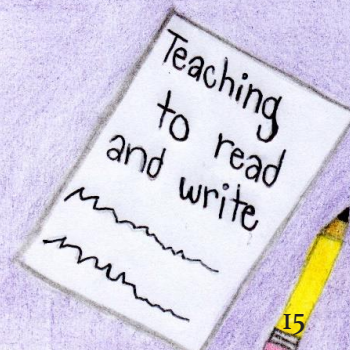 Teaching
to read
and write
15